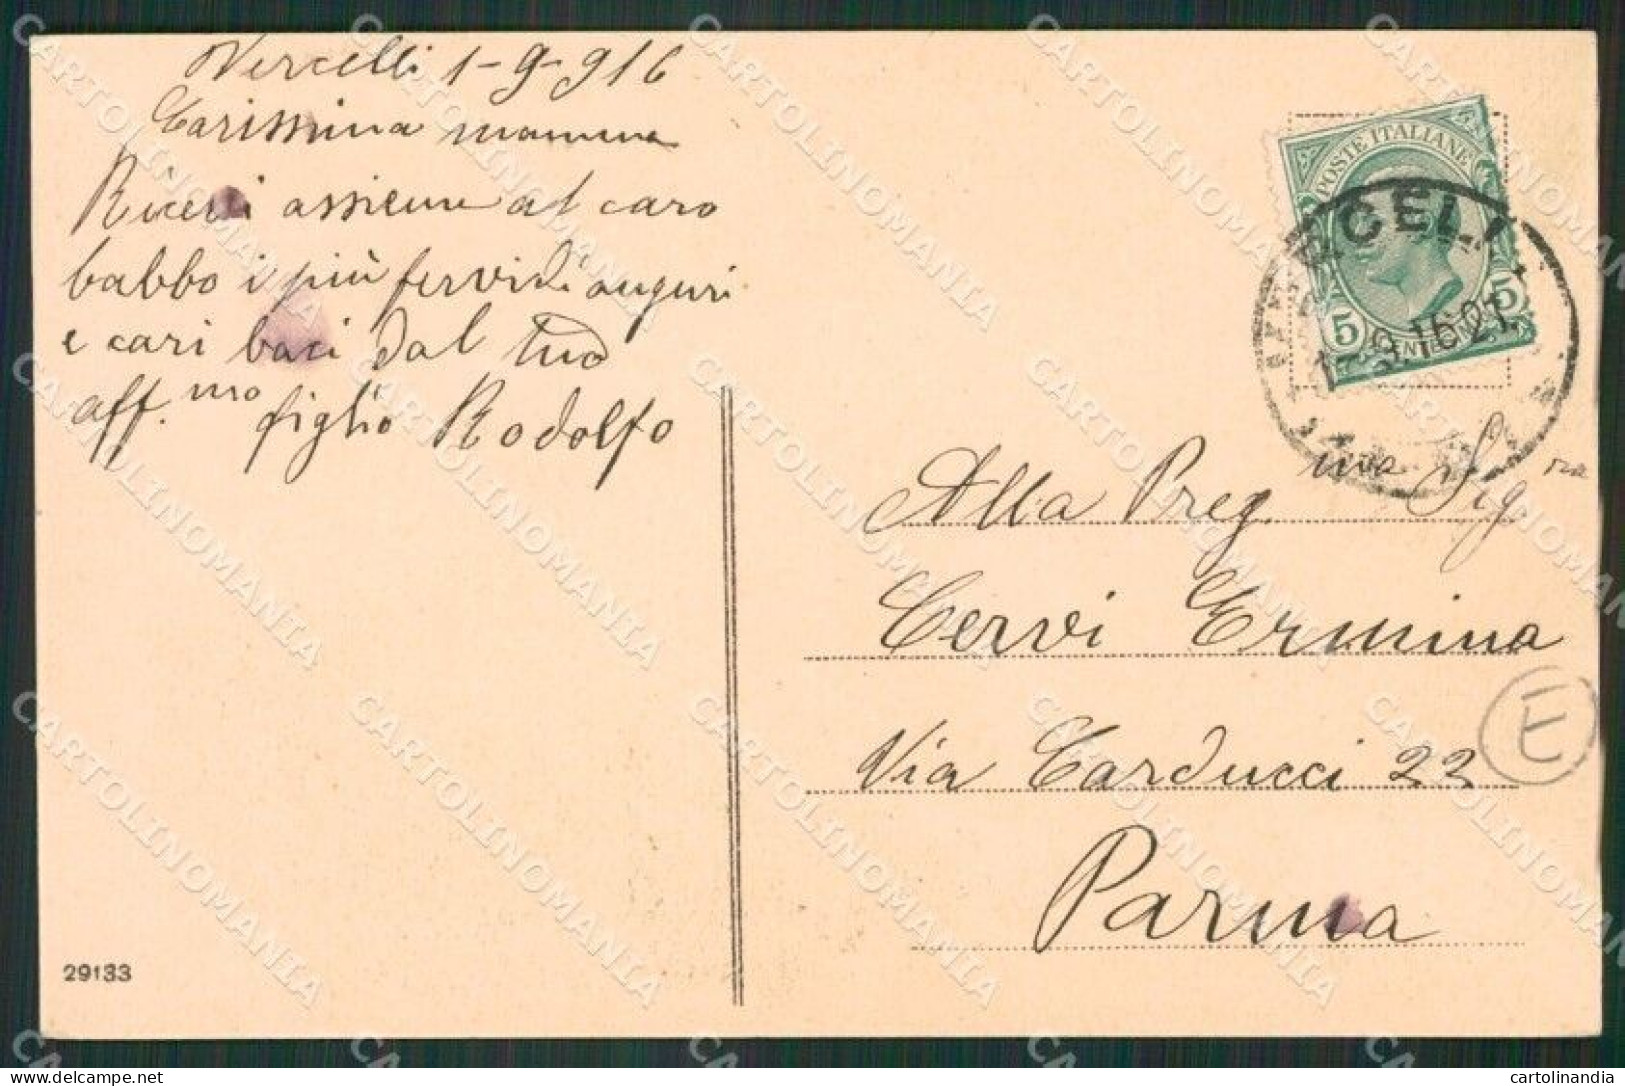 Vercelli 1-9-916
Carissima mamma
Ricevi assieme al caro
babbo i più fervidi auguri
e cari baci dal tuo
aff.mo figlio Rodolfo
POSTE ITALIANE
5 5
CELLI
1 - 9.16 21
Alla Preg.ma Sig.ra
Cervi Ermina
E
Via Carducci 22
Parma
29133
CARTOLINOMANIA
www.delcampe.net
cartolinandia